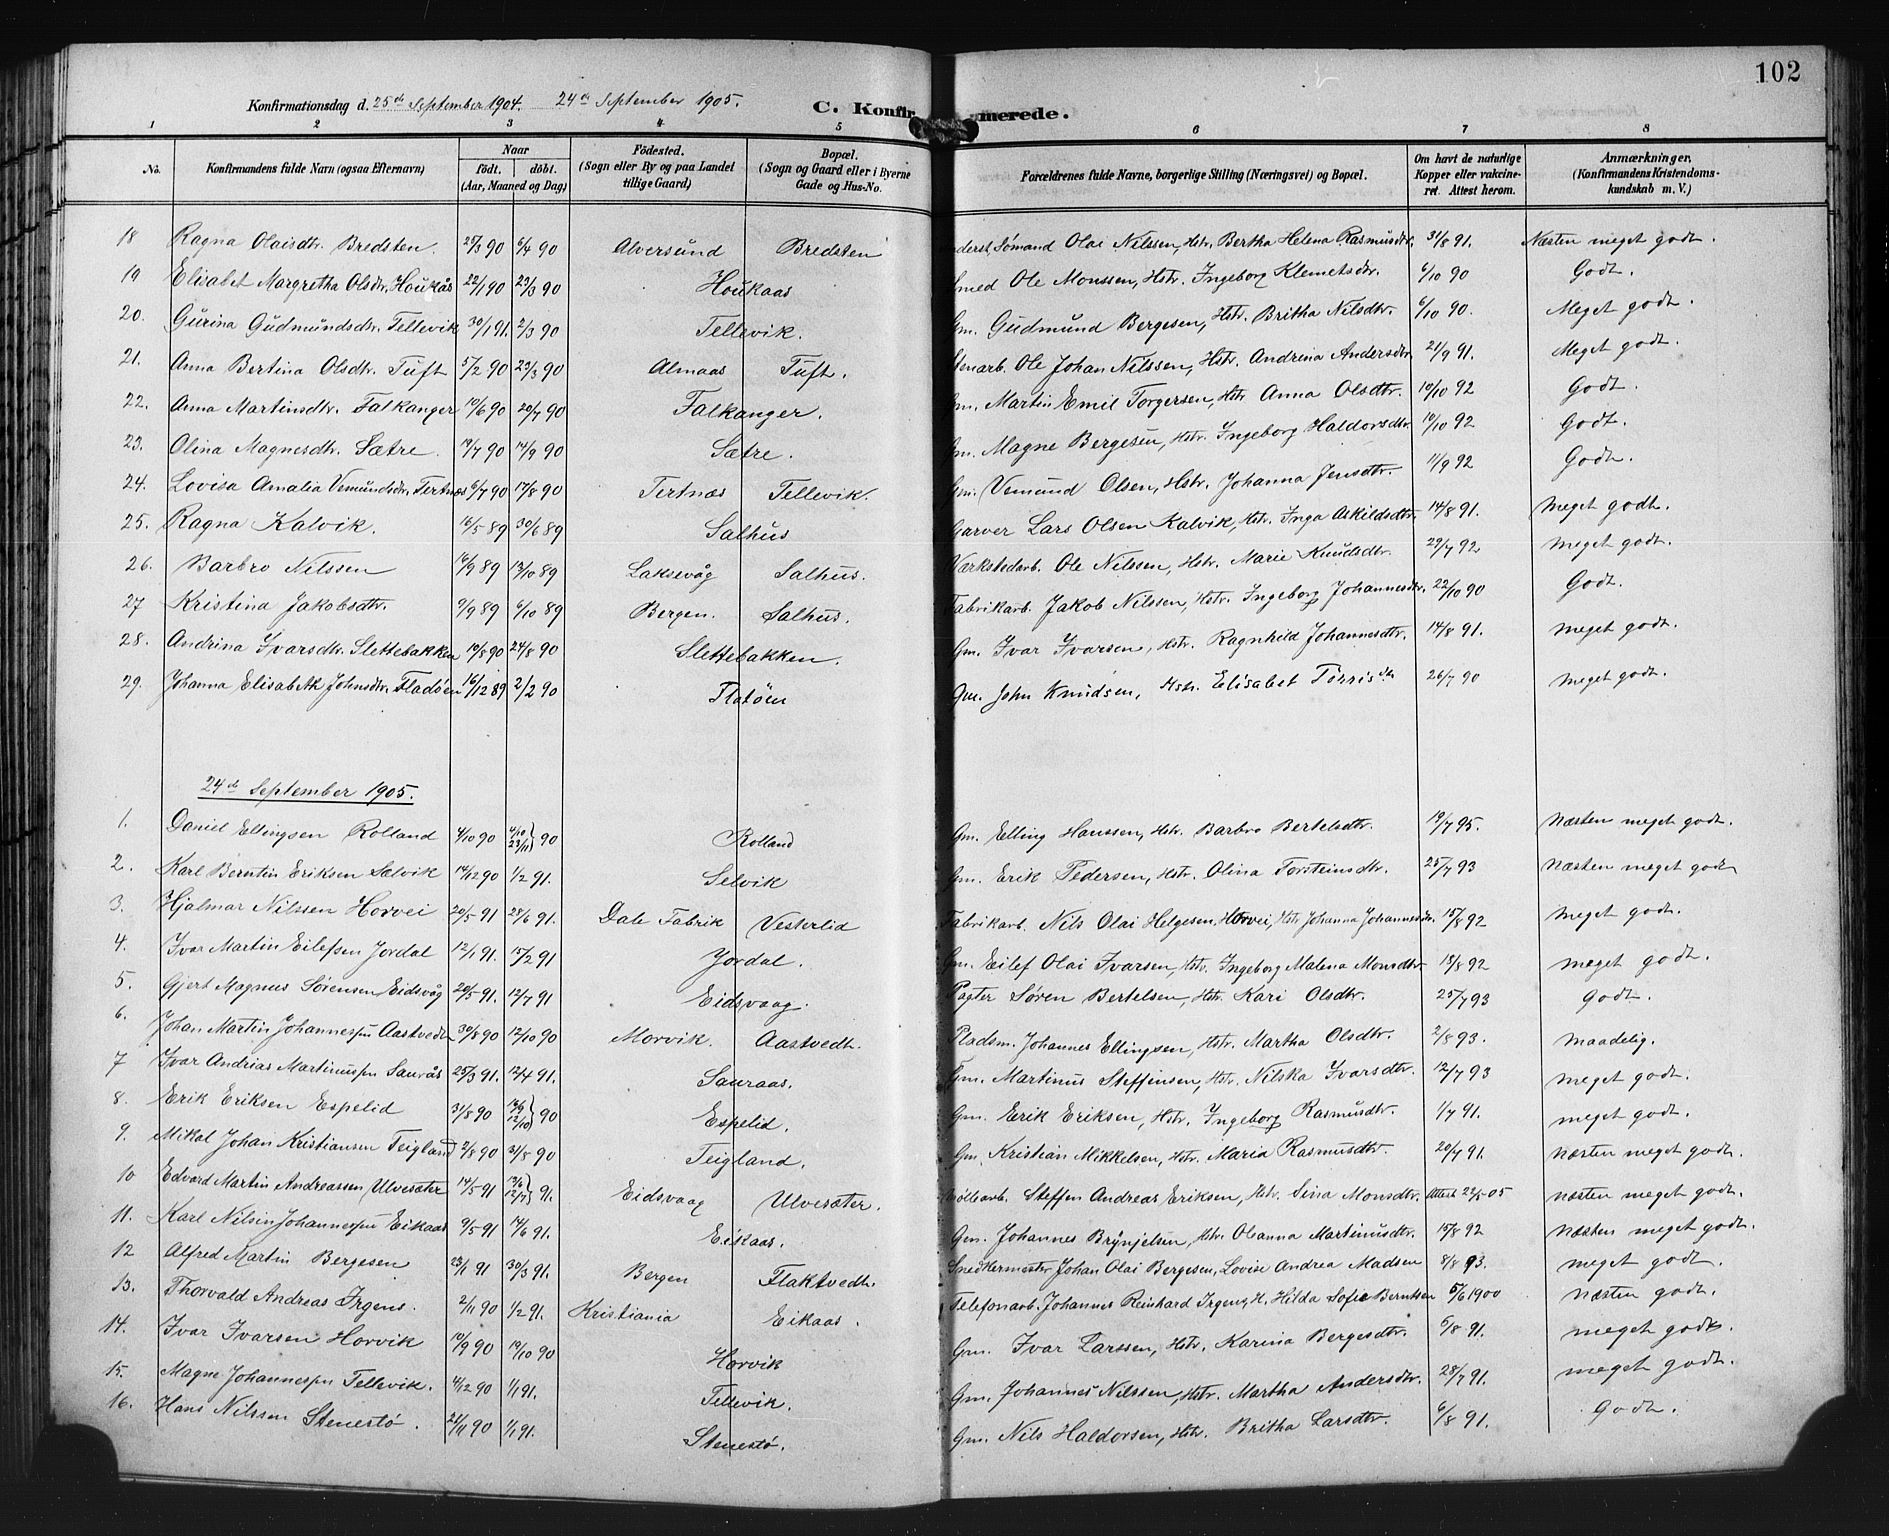 102
Konfirmationsdag d. 25de September 1904. 24de September 1905. C. Konfirmerede.
1 2 3 4 5 6 7 8
No. Konfirmandens fulde Navn (ogsaa Efternavn) Naar födt. döbt. (Aar, Maaned og Dag) Födested. (Sogn eller By og paa Landet tillige Gaard) Bopæl. (Sogn og Gaard eller i Byerne Gade og Hus-No. Forældrenes fulde Navne, borgerlige Stilling (Næringsvei) og Bopæl. Om havt de naturlige Kopper eller vakcineret. Attest herom. Anmærkninger, (Konfirmandens Kristendomskundskab m. V.)
18 Ragna Olaisdtr. Bredsten. 25/3 90 6/4 90 Alversund Bredsten Sømand Olai Nilssen, Hstr. Bertha Helena Rasmusdtr. 31/8 91. Næsten meget godt.
19 Elisabet Margretha Olsdtr. Houkås 22/1 90 23/3 90 Houkaas Smed Ole Monssen, Hstr. Ingeborg Klemetsdtr. 6/10 90 Godt.
20. Gurina Gudmundsdtr. Tellevik 30/1 91. 2/3 90 Tellevik. Gm. Gudmund Bergesen, Hstr. Britha Nilsdtr. 6/10 90. Meget godt.
21. Anna Bertina Olsdtr. Tuft 5/2 90 23/3 90 Almaas Tuft. Stenarb. Ole Johan Nilssen, Hstr. Andrina Andersdtr. 21/9 91. Meget godt.
22. Anna Martinsdtr. Falkanger 19/6 90 20/7 90 Falkanger. Gm. Martin Emil Torgersen, Hstr Anna Olsdtr. 10/10 92 Godt.
23. Olina Magnesdtr. Sætre. 19/7 90 14/9 90 Sætre. Gm. Magne Bergesen, Hstr. Ingeborg Haldorsdtr. 10/10 92 Godt.
24. Lovisa Amalia Vemundsdtr. Tertnæs 6/7 90 17/8 90 Tertnæs Tellevik. Gm. Vemund Olsen, Hstr. Johanna Jensdtr. 11/9 92 Godt.
25. Ragna Kalvik. 16/5 89 30/6 89 Salhus Garver Lars Olsen Kalvik, Hstr. Inga Askildsdtr. 14/8 91. Meget godt.
26. Barbro Nilssen 16/9 89 13/10 89 Laksevåg Salhus. Værkstedarb. Ole Nilssen, Hstr. Marie Knudsdtr. 29/7 92 Meget godt.
27 Kristina Jakobsdtr. 9/9 89 6/10 89 Bergen. Salhus. Fabrikarb. Jakob Nilssen, Hstr. Ingeborg Johannesdtr. 22/10 90 Godt.
28. Andrina Ivarsdtr. Slettebakken 19/8 90 24/8 90 Slettebakken. Gm. Ivar Ivarsen, Hstr. Ragnhild Johannesdtr. 14/8 91. Meget godt.
29. Johanna Elisabeth Johnsdtr. Fladöen 16/12 89 2/2 90 Flatöen Gm. John Knudsen, Hstr. Elisabet Törrisdtr 26/7 90 Meget godt.
24de September 1905.
1. Daniel Ellingsen Rolland 4/10 90 4/10 23/11 } 90 Rolland Gm. Elling Hanssen, Hstr. Barbro Bertelsdtr. 19/7 95. Næsten meget godt.
2. Karl Berntin Eriksen Sælvik 14/12 90 1/2 91. Selvik Gm. Erik Pedersen, Hstr. Olina Torsteinsdtr. 25/7 93 Næsten meget godt
3. Hjalmar Nilssen Horvei 20/5 91 28/6 91. Dale Fabrik Vesterlid Fabrikarb. Nils Olai Helgesen Horvei, Hstr Johanna Johannesdtr. 15/8 92 Meget godt.
4. Ivar Martin Eilefsen Jordal 12/1 91. 15/2 91 Jordal. Gm. Eilef Olai Ivarsen, Hstr. Ingeborg Malena Monsdtr 18/8 92 Meget godt.
5. Gjert Magnus Sörensen Eidsvåg 20/5 91. 12/7 91 Eidsvaag. Pagter Sören Bertelsen, Hstr. Kari Olsdtr. 25/7 93 Godt.
6. Johan Martin Johannessen Aastvedt 30/8 90 12/10 90 Morvik. Aastvedt. Pladsm. Johannes Ellingsen, Hstr. Martha Olsdtr. 2/8 93. Maadelig.
7 Ivar Andrias Martinussen Saurås 25/3 91. 12/4 91. Sauraas. Gm. Martinus Steffensen, Hstr. Nilska Ivarsdtr. 12/7 93 Meget godt.
8. Erik Eriksen Espelid 31/8 90 12/10 } 90 Espelid. Gm. Erik Eriksen, Hstr. Ingeborg Rasmusdtr. 1/7 91. Meget godt.
9. Mikal Johan Kristiansen Teigland 2/8 90 31/8 90 Teigland. Gm. Kristian Mikkelsen, Hstr. Maria Rasmusdtr. 20/7 91. Næsten meget godt.
10 Edvard Martin Andreassen Ulvesæter 14/5 91 12/7 } 91. Eidsvaag Ulvesæter. Mölleearb. Steffen Andreas Eriksen, Hstr. Sina Monsdtr. Attest 22/5 05 Næsten meget godt.
11. Karl Nilsin Johannessen Eikaas 9/5 91 14/6 91. Eikaas. Gm. Johannes Brynjelsen, Hstr. Oleanna Martinusdtr. 15/8 92 Næsten meget godt.
12 Alfred Martin Bergesen 23/1 91 30/3 91. Bergen Flaktvedt. Snedkermester Johan Olai Bergesen, Lovise Andrea Madsen 8/8 93. Meget godt.
13. Thorvald Andreas Irgens. 2/11 90 1/2 91. Kristiania Eikaas. Telefonarb. Johannes Reinhard Irgens, H. Hilda Sofie Berntsen 5/6 1900 Næsten godt.
14. Ivar Ivarsen Horvik 10/9 90 19/10 90 Horvik Gm. Ivar Larssen, Hstr. Karina Bergesdtr. 6/8 91. Meget godt.
15. Magne Johannessen Tellevik. 4/12 90 1/1 91. Tellevik. Gm. Johannes Nilssen, Hstr. Martha Andersdtr. 28/7 91. Meget godt.
16. Hans Nilssen Stenestø. 21/11 90 1/1 91. Stenestø. Gm. Nils Haldorsen, Hstr. Britha Larsdtr. 6/8 91. Godt.